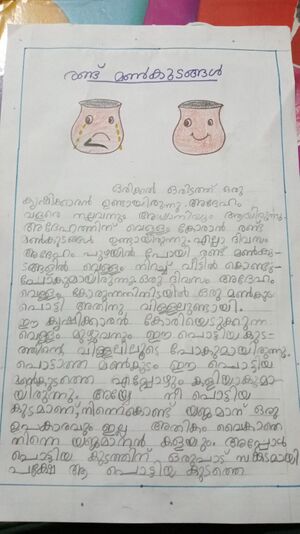 രണ്ട് മൺകുടങ്ങൾ
ഒരിക്കൽ ഒരിടത്ത് ഒരു
കൃഷിക്കാരൻ ഉണ്ടായിരുന്നു. അദ്ദേഹം
വളരെ നല്ലവനും അധ്വാനിയും ആയിരുന്നു.
അദ്ദേഹത്തിന് വെള്ളം കോരാൻ രണ്ട്
മൺകുടങ്ങൾ ഉണ്ടായിരുന്നു. എല്ലാ ദിവസം
അദ്ദേഹം പുഴയിൽ പോയി രണ്ട് മൺകു-
ടങ്ങളിൽ വെള്ളം നിറച്ച് വീട്ടിൽ കൊണ്ടു-
പോകുമായിരുന്നു. ഒരു ദിവസം അദ്ദേഹം
വെള്ളം കോരുന്നതിനിടയിൽ ഒരു മൺകുടം
പൊട്ടി അതിനു വിള്ളലുണ്ടായി.
ഈ കൃഷിക്കാരൻ കോരിയെടുക്കുന്ന
വെള്ളം മുഴുവനും ഈ പൊട്ടിയ കുട-
ത്തിന്റെ വിള്ളലിലൂടെ പോകുമായിരുന്നു.
പൊട്ടാത്ത മൺകുടം ഈ പൊട്ടിയ
മൺകുടത്തെ എപ്പോഴും കളിയാക്കുമാ-
യിരുന്നു. അയ്യേ നീ പൊട്ടിയ
കുടമാണ്, നിന്നെകൊണ്ട് യജമാന് ഒരു
ഉപകാരവും ഇല്ല അതികം വൈകാതെ
നിന്നെ യജമാനൻ കളയും. അപ്പോൾ
പൊട്ടിയ കുടത്തിന് ഒരുപാട് സങ്കടമായി
പക്ഷേ ആ പൊട്ടിയ കുടത്തെ